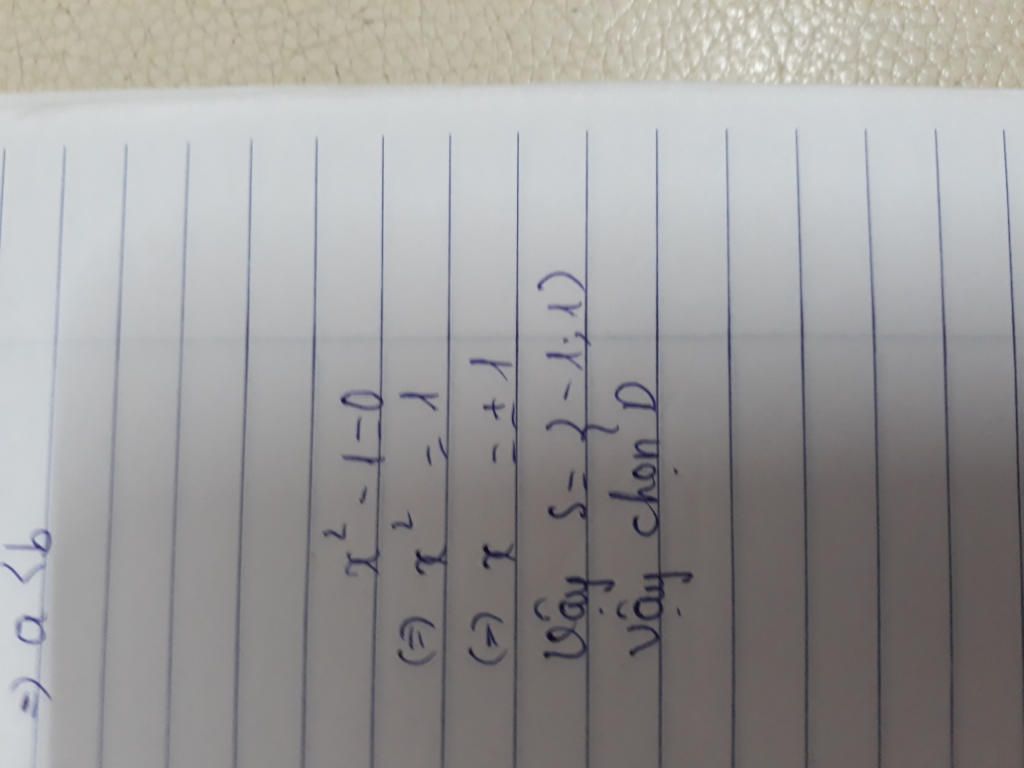 =) a < b
x² - 1 = 0
(=) x² = 1
(=) x = ± 1
Vậy S = { - 1 ; 1 )
Vậy chọn D